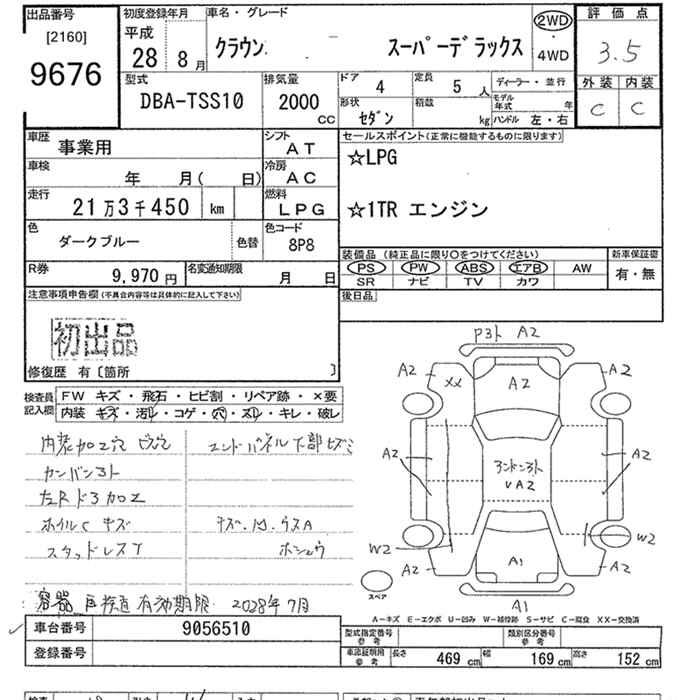 出品番号
[2160]
9676
初度登録年月
平成
28 8月
車名・グレード
クラウン スーパーデラックス
2WD
4WD
評価点
3.5
外装 内装
C C
型式
DBA-TSS10
排気量
2000 CC
ドア 4
定員 5人
ディーラー・並行
形状 セダン
積載 kg
モデル年式 年
ハンドル 左・右
車歴 事業用
シフト AT
セールスポイント(正常に機能するものに限ります)
☆LPG
☆1TR エンジン
車検 年 月( 日)
冷房 AC
走行 21万3千450 km
燃料 LPG
色 ダークブルー 色替
色コード 8P8
装備品 (純正品に限り○をつけてください)
PS PW ABS エアB AW
SR ナビ TV カワ
新車保証書
有・無
R券 9,970円
名変通知期限 月 日
後日品
注意事項申告欄(不具合内容等は具体的に記入して下さい)
初出品
修復歴 有〔箇所 〕
検査員記入欄
FW キズ・飛石・ヒビ割・リペア跡・×要
内装 キズ・汚レ・コゲ・穴・スレ・キレ・破レ
内装加工穴 ビス穴
エンドパネル下部キズミ
カンバン3ト
左Rドア加工
ホイルC キズ
キズ・凹・ウスA
スタッドレスT
ホシュウ
容器再検査有効期限 2028年7月
P3ト A2
A2 XX A2 A2
A2 アンドン3ト A2
VA2
W2 W2
A2 A1 A2
A1
スペア
A-キズ E-エクボ U-凹み W-補修跡 S-サビ C-腐食 XX-交換済
車台番号 9056510
型式指定番号 参考
類別区分番号 参考
登録番号
車庫証明用 参考
長さ 469cm 幅 169cm 高さ 152cm